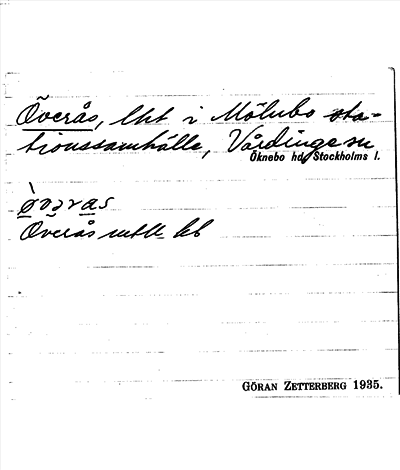 Överås, lht i Mölnbo sta-
tionssamhälle, Vårdinge sn
Öknebo hd, Stockholms l.
Överås
GÖRAN ZETTERBERG 1935.